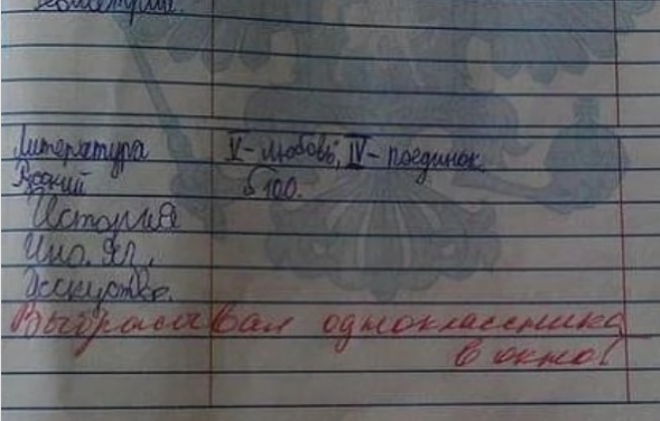 Геометрия.
Литература V-любовь, IV-поединок.
Родной §100.
История
Ино. яз.
Исскуство.
Выбрасывал одноклассника
в окно!